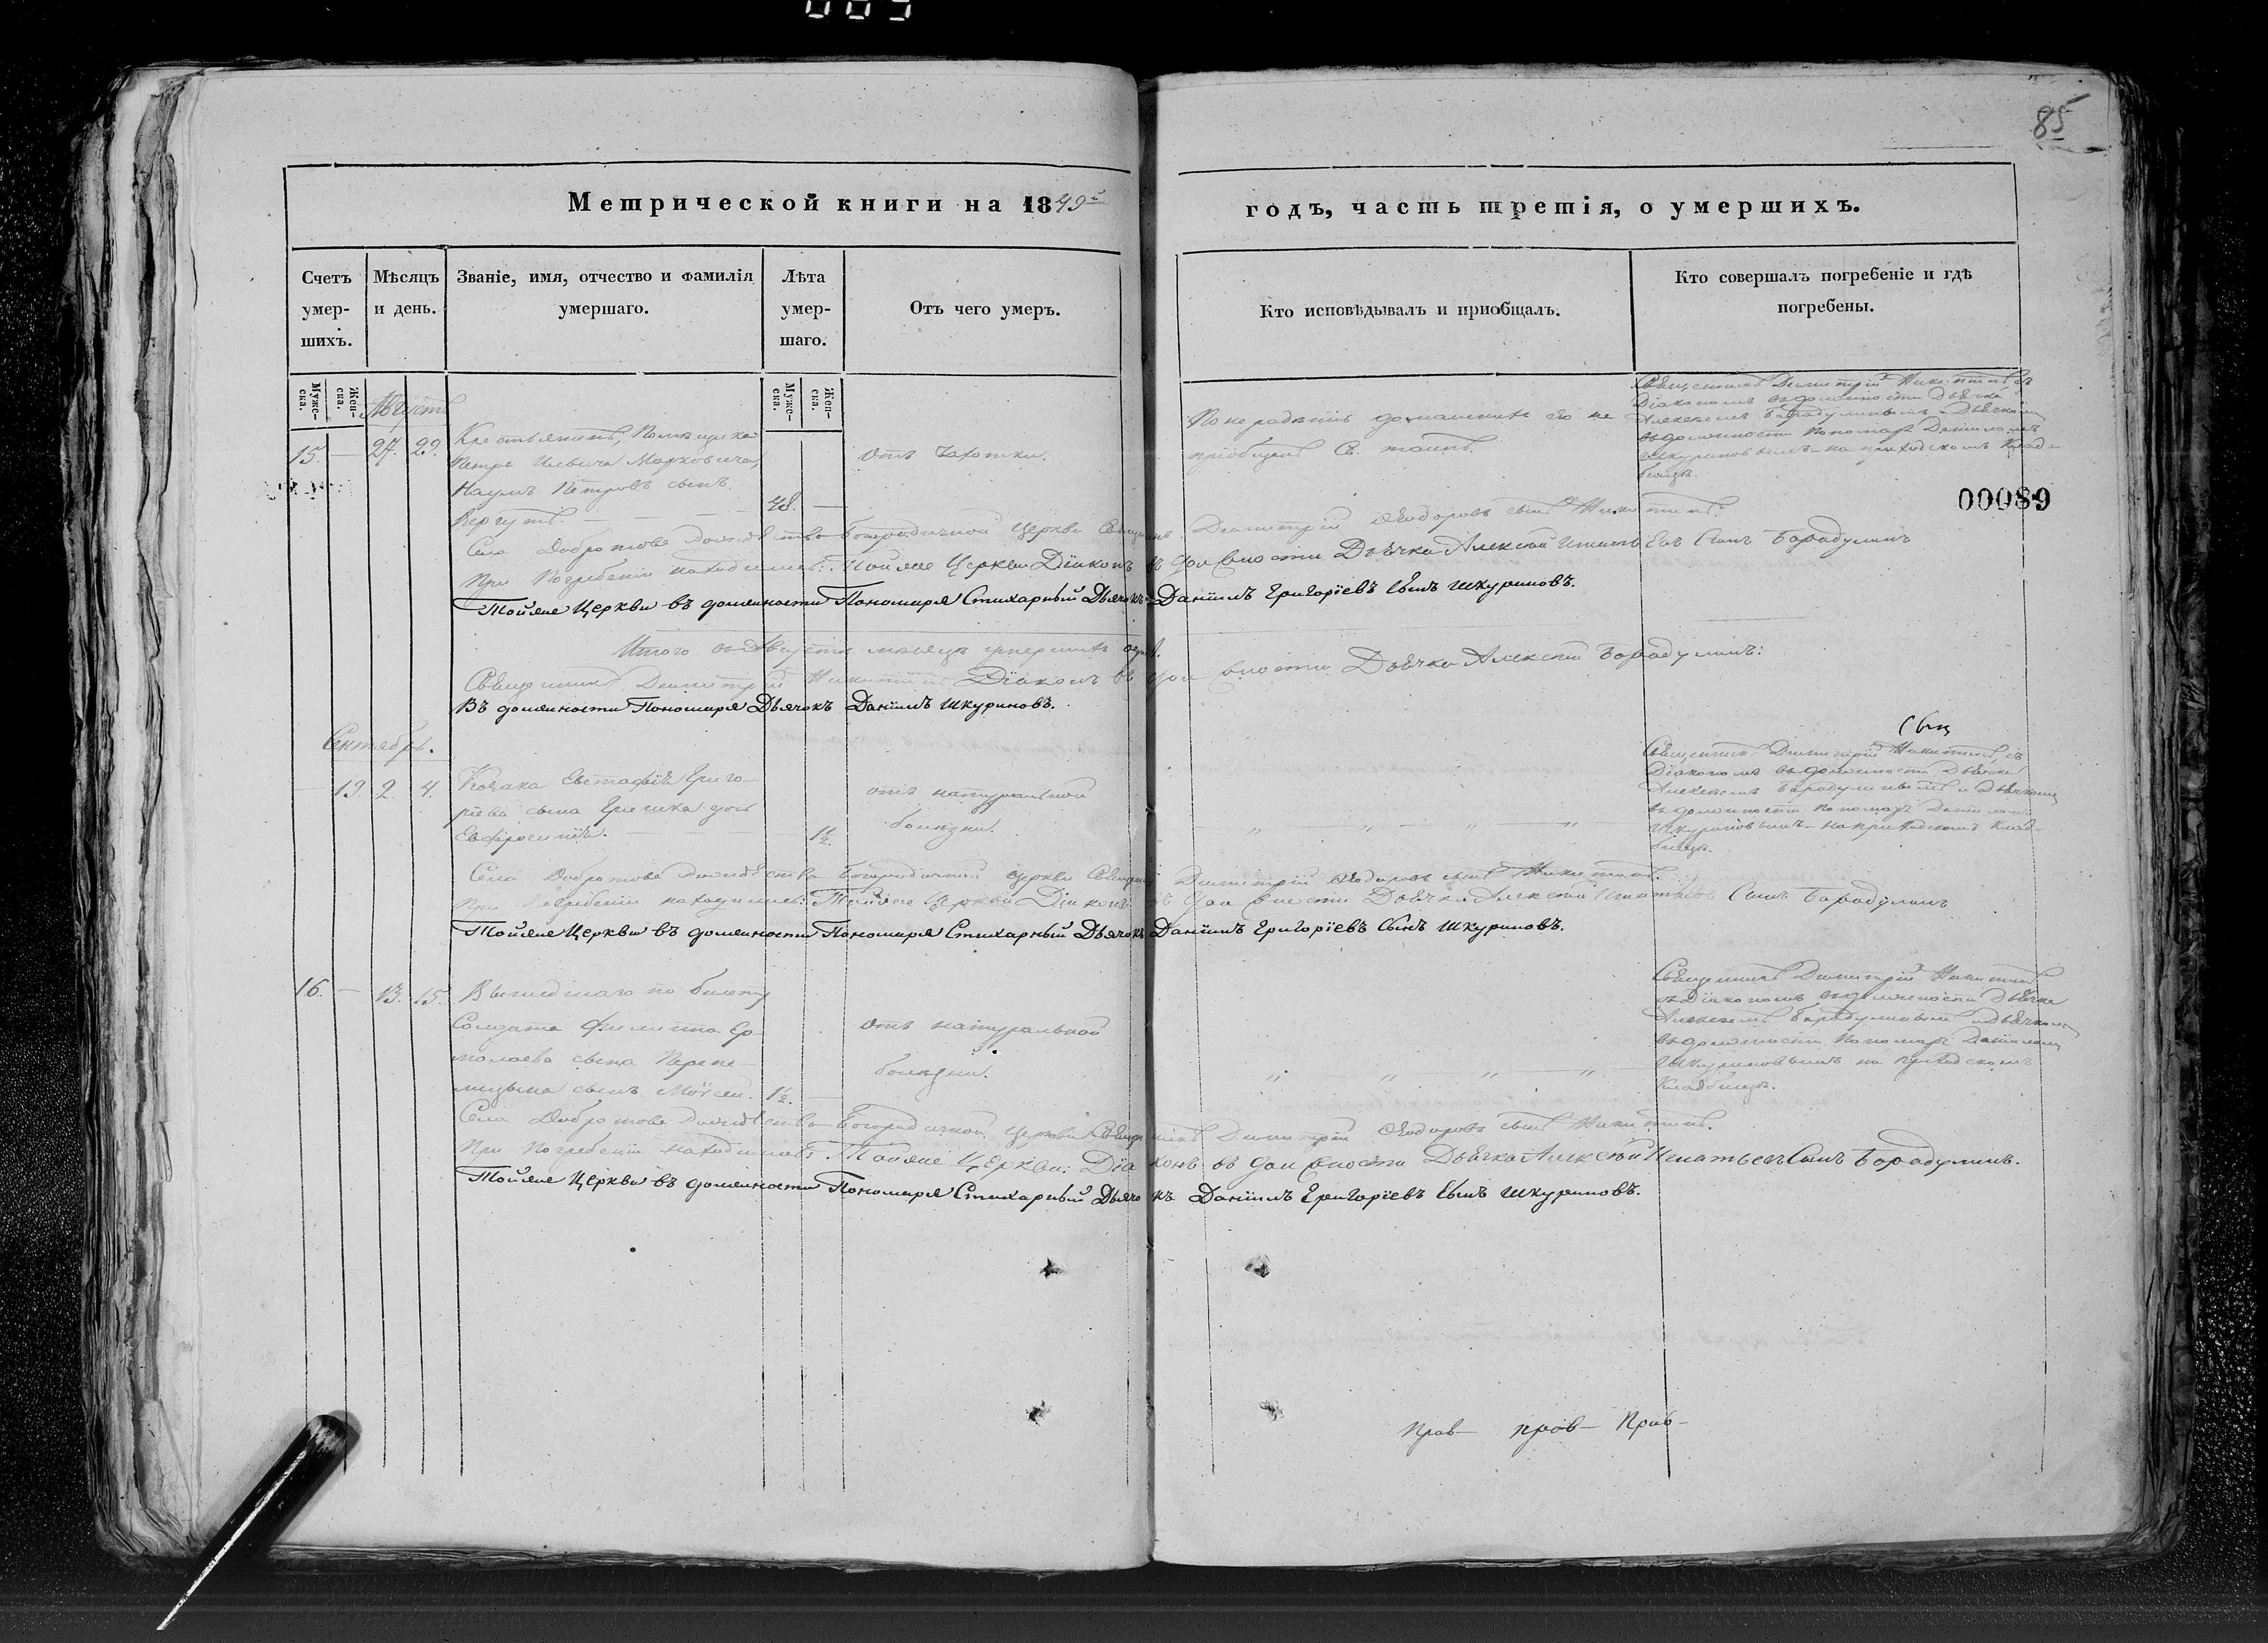 085
85
Метрической книги на 1849й
годъ, часть третія, о умершихъ.
Счетъ умер-шихъ.
Мѣсяцъ и день.
Званіе, имя, отчество и фамилія умершаго.
Лѣта умер-шаго.
Отъ чего умеръ.
Кто исповѣдывалъ и пріобщалъ.
Кто совершалъ погребеніе и гдѣ погребены.
Муже-ска.
Жен-ска.
Муже-ска.
Жен-ска.
Августъ
15. — 27. 29.
Крестьянинъ, Помѣщика
Петра Ильича
Наумъ Петровъ сынъ
48. —
отъ Чахотки.
не
пріобщенъ Св. таинъ.
Священникъ Димитрій Никитинъ съ
Діакономъ въ должности Дьячка
Алексѣемъ Барадулинымъ и Дьячкомъ
въ должности Пономаря Даніиломъ
Шкуриновымъ на приходскомъ Клад-
бищѣ.
00089
Села Богородичной Церкви Священникъ Димитрій Ѳеодоровъ сынъ Никитинъ.
При Погребеніи находились: Тойже Церкви Діаконъ въ должности Дьячка Алексѣй Игнатьевъ Сынъ Барадулинъ
Тойже Церкви въ должности Пономаря Стихарный Дьячокъ Даніилъ Григоріевъ Сынъ Шкуриновъ.
Итого въ Августѣ мѣсяцѣ умершихъ
Священникъ Димитрій Никитинъ Діаконъ въ должности Дьячка Алексѣй Барадулинъ:
Въ должности Пономаря Дьячокъ Даніилъ Шкуриновъ.
Сентябрь.
— 19. 2. 4.
Козака Евстафія Григо-
рієва сына дочь
Евфросинія.
— 1½.
отъ натуральной
болѣзни.
Священникъ Димитрій Никитинъ, съ
Діакономъ въ должности Дьячка
Алексѣемъ Барадулинымъ и Дьячкомъ
въ должности Пономаря Даніиломъ
Шкуриновымъ на приходскомъ Клад-
бищѣ.
Села Богородичной Церкви Священникъ Димитрій Ѳеодоровъ сынъ Никитинъ.
При Погребеніи находились: Тойже Церкви Діаконъ въ должности Дьячка Алексѣй Игнатьевъ Сынъ Барадулинъ
Тойже Церкви въ должности Пономаря Стихарный Дьячокъ Даніилъ Григоріевъ Сынъ Шкуриновъ.
16. — 13. 15.
по билету
Солдата Филиппа Ер-
молаева сына
сынъ Моѵсей. 1½. —
отъ натуральной
болѣзни.
Священникъ Димитрій Никитинъ
съ Діакономъ въ должности Дьячка
Алексѣемъ Барадулинымъ и Дьячкомъ
въ должности Пономаря Даніиломъ
Шкуриновымъ на приходскомъ
Кладбищѣ.
Села Богородичной Церкви Священникъ Димитрій Ѳеодоровъ сынъ Никитинъ.
При Погребеніи находились: Тойже Церкви: Діаконъ въ должности Дьячка Алексѣй Игнатьевъ Сынъ Барадулинъ.
Тойже Церкви въ должности Пономаря Стихарный Дьячокъ Даніилъ Григоріевъ Сынъ Шкуриновъ.